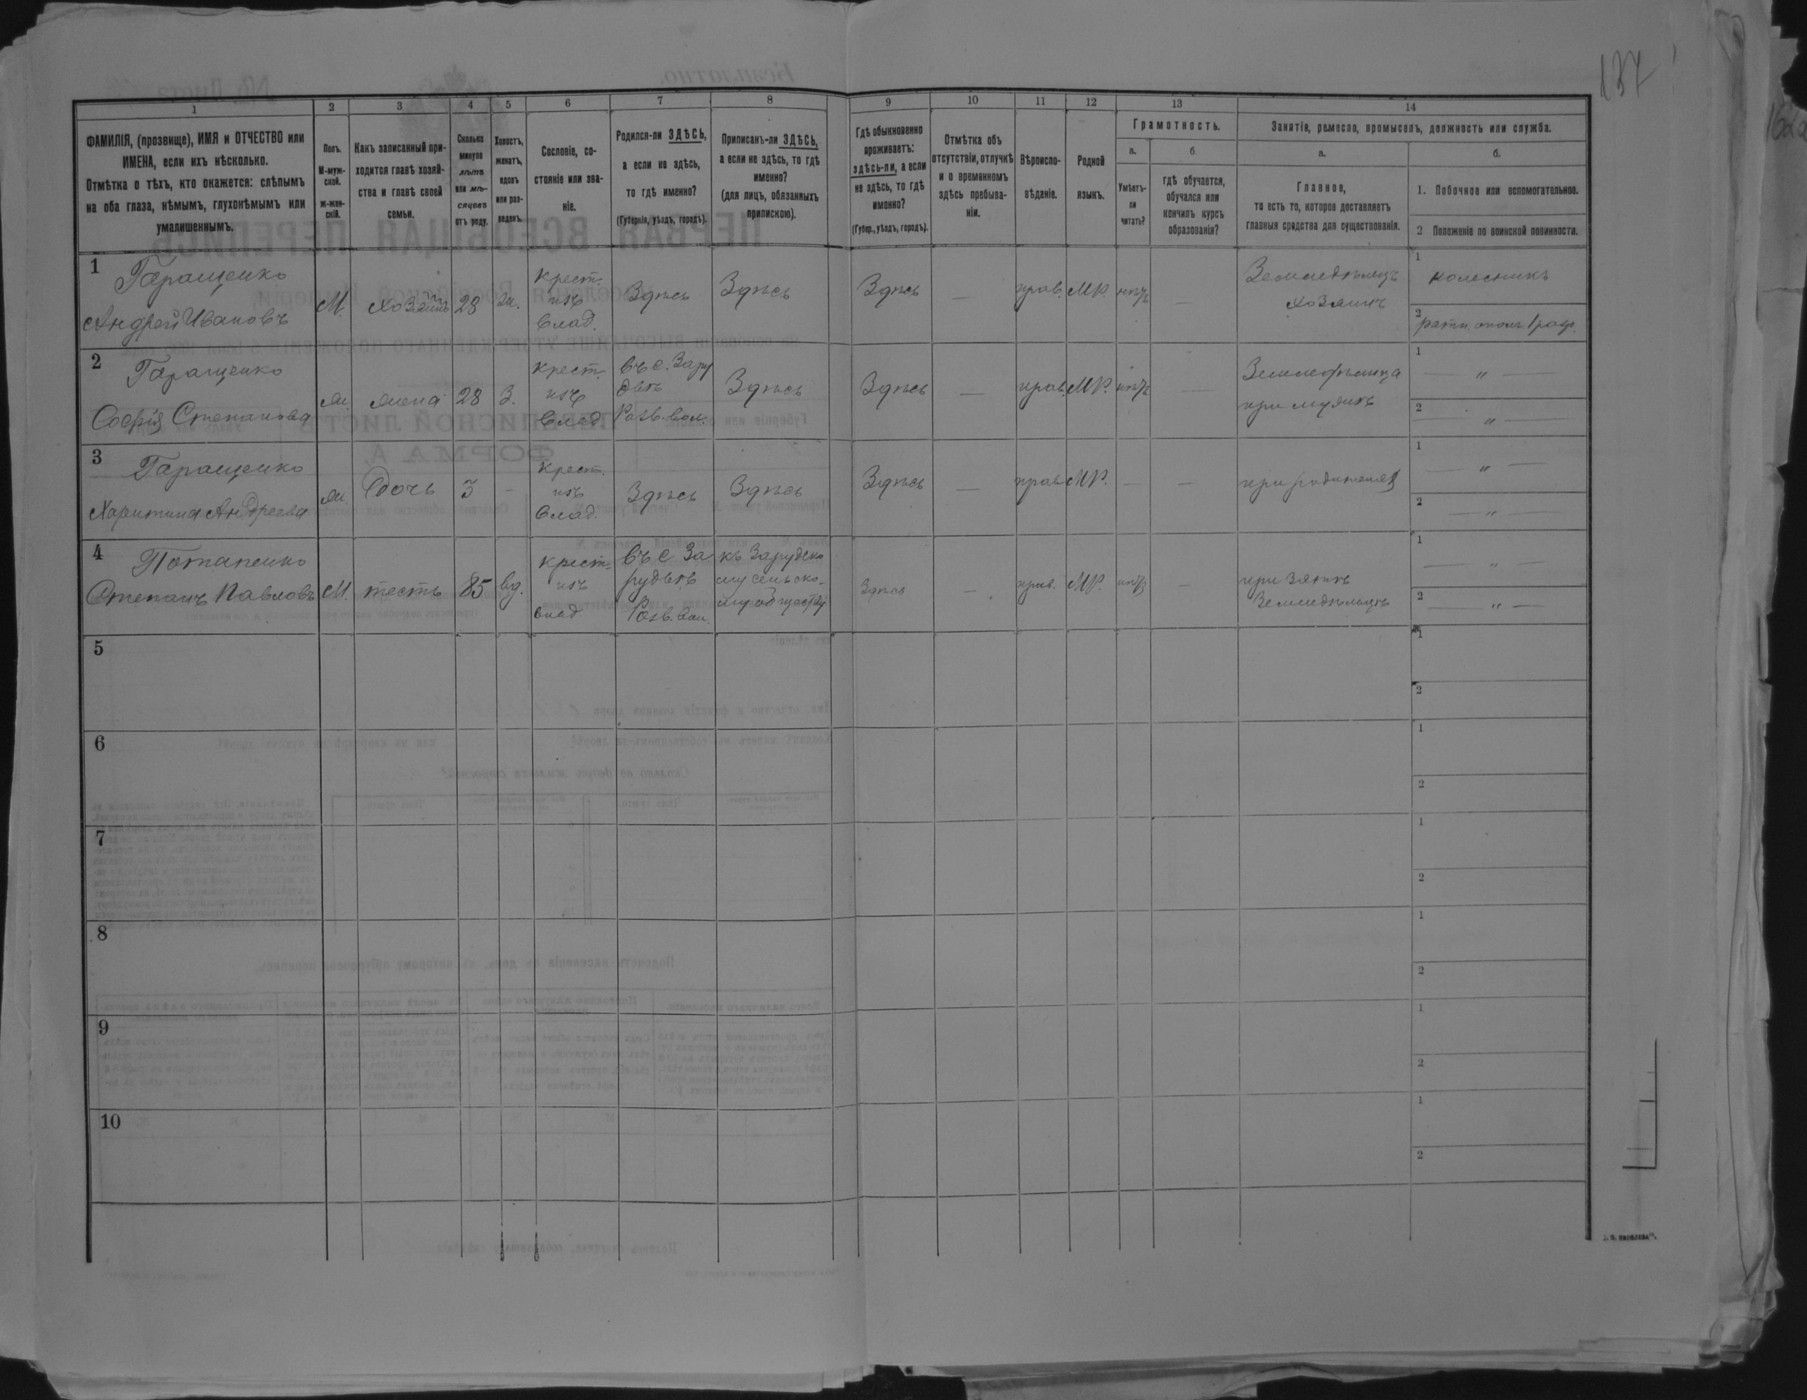 137
1 2 3 4 5 6 7 8 9 10 11 12 13 14
ФАМИЛІЯ, (прозвище), ИМЯ и ОТЧЕСТВО или
ИМЕНА, если ихъ нѣсколько.
Отмѣтка о тѣхъ, кто окажется: слѣпымъ
на оба глаза, нѣмымъ, глухонѣмымъ или
умалишеннымъ.
Полъ.
М-муж-
ской.
ж-жен-
скій.
Какъ записанный при-
ходится главѣ хозяй-
ства и главѣ своей
семьи.
Сколько
минуло
лѣтъ
или мѣ-
сяцевъ
отъ роду.
Холостъ,
женатъ,
вдовъ
или раз-
веденъ.
Сословіе, со-
стояніе или зва-
ніе.
Родился-ли ЗДѢСЬ,
а если не здѣсь,
то гдѣ именно?
(Губернія, уѣздъ, городъ).
Приписанъ-ли ЗДѢСЬ,
а если не здѣсь, то гдѣ
именно?
(для лицъ, обязанныхъ
припискою).
Гдѣ обыкновенно
проживаетъ:
здѣсь-ли, а если
не здѣсь, то гдѣ
именно?
(Губер., уѣздъ, городъ).
Отмѣтка объ
отсутствіи, отлучкѣ
и о временномъ
здѣсь пребыва-
ніи.
Вѣроиспо-
вѣданіе.
Родной
языкъ.
Грамотность.
а.
Умѣетъ-
ли
читать?
б
гдѣ обучается,
обучался или
кончилъ курсъ
образованія?
Занятіе, ремесло, промыселъ, должность или служба.
а.
Главное,
то есть то, которое доставляетъ
главныя средства для существованія.
б.
1. Побочное или вспомогательное.
2 Положеніе по воинской повинности.
1
Гаращенко
Андрей Ивановъ
М.
хозяинъ
28
ж.
крест.
изъ
влад.
Здѣсь
Здѣсь
Здѣсь
—
прав.
МР.
нѣтъ
—
Земледѣлецъ
хозяинъ
1
колесникъ
2
ратн. опол. 1 разр.
2
Гаращенко
Софія Степанова
ж.
жена
28
З.
крест.
изъ
влад.
въ с. Зару
дьѣ
Розв. вол.
Здѣсь
Здѣсь
—
прав.
МР.
нѣтъ
—
Земледѣлица
при мужѣ
1
— „ —
2
— „ —
3
Гаращенко
Харитина Андреева
ж.
дочь
3
—
крест.
изъ
влад.
Здѣсь
Здѣсь
Здѣсь
—
прав.
МР.
—
—
при родителяхъ
1
— „ —
2
— „ —
4
Потапенко
Степанъ Павловъ
М.
тесть
85
вд.
крест.
изъ
влад
въ с За
рудьѣ
Розв. вол.
къ Зарудско
му сельско-
му обществу
Здѣсь
—
прав.
МР.
нѣтъ
—
при зятѣ
Земледѣлецъ
1
— „ —
2
— „ —
5
1
2
6
1
2
7
1
2
8
1
2
9
1
2
10
1
2